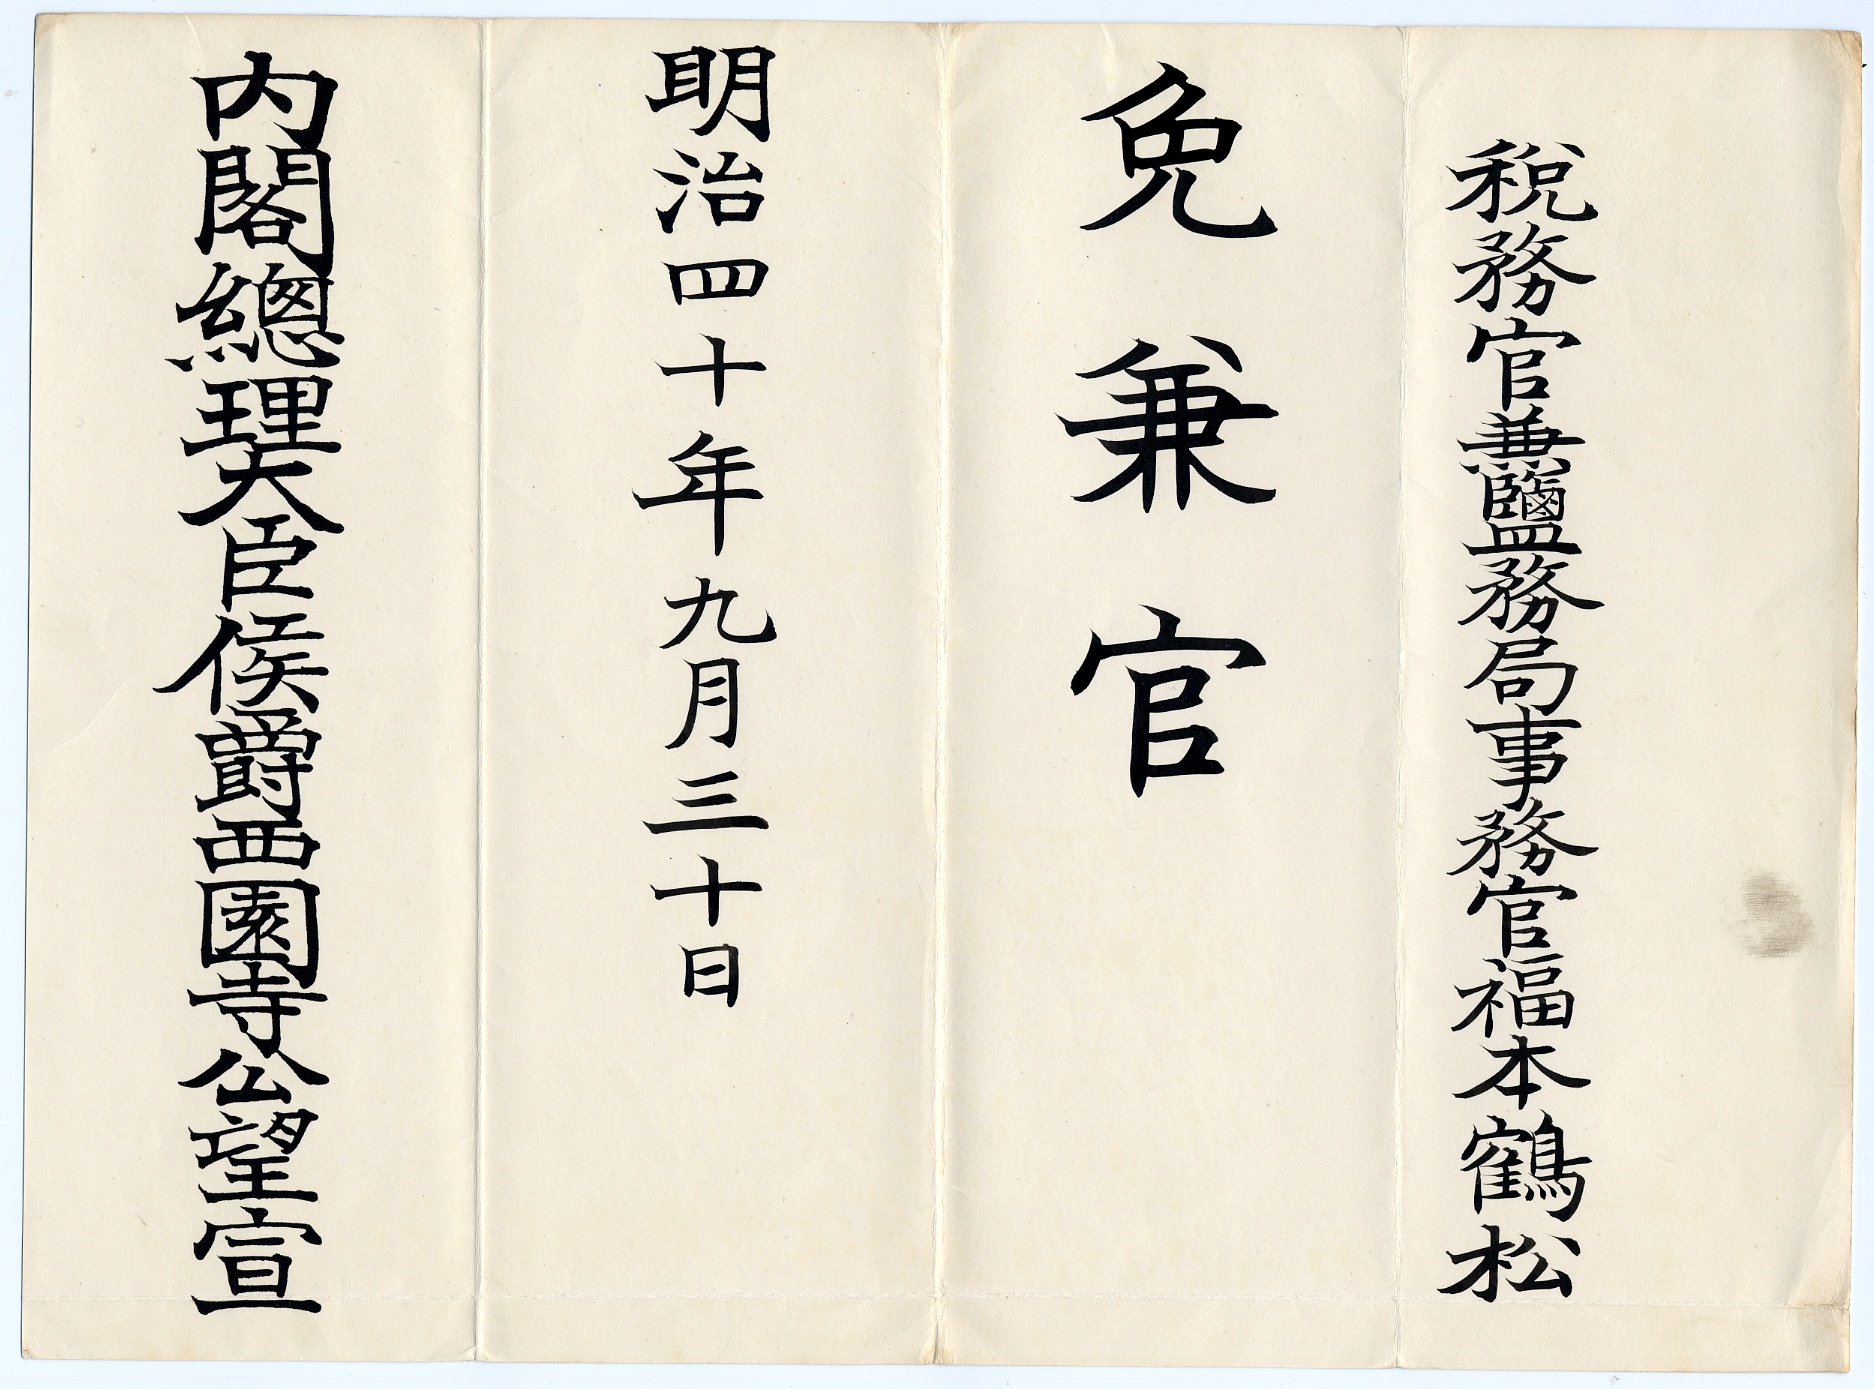 税務官兼鹽務局事務官福本鶴松
免兼官
明治四十年九月三十日
内閣總理大臣侯爵西園寺公望宣